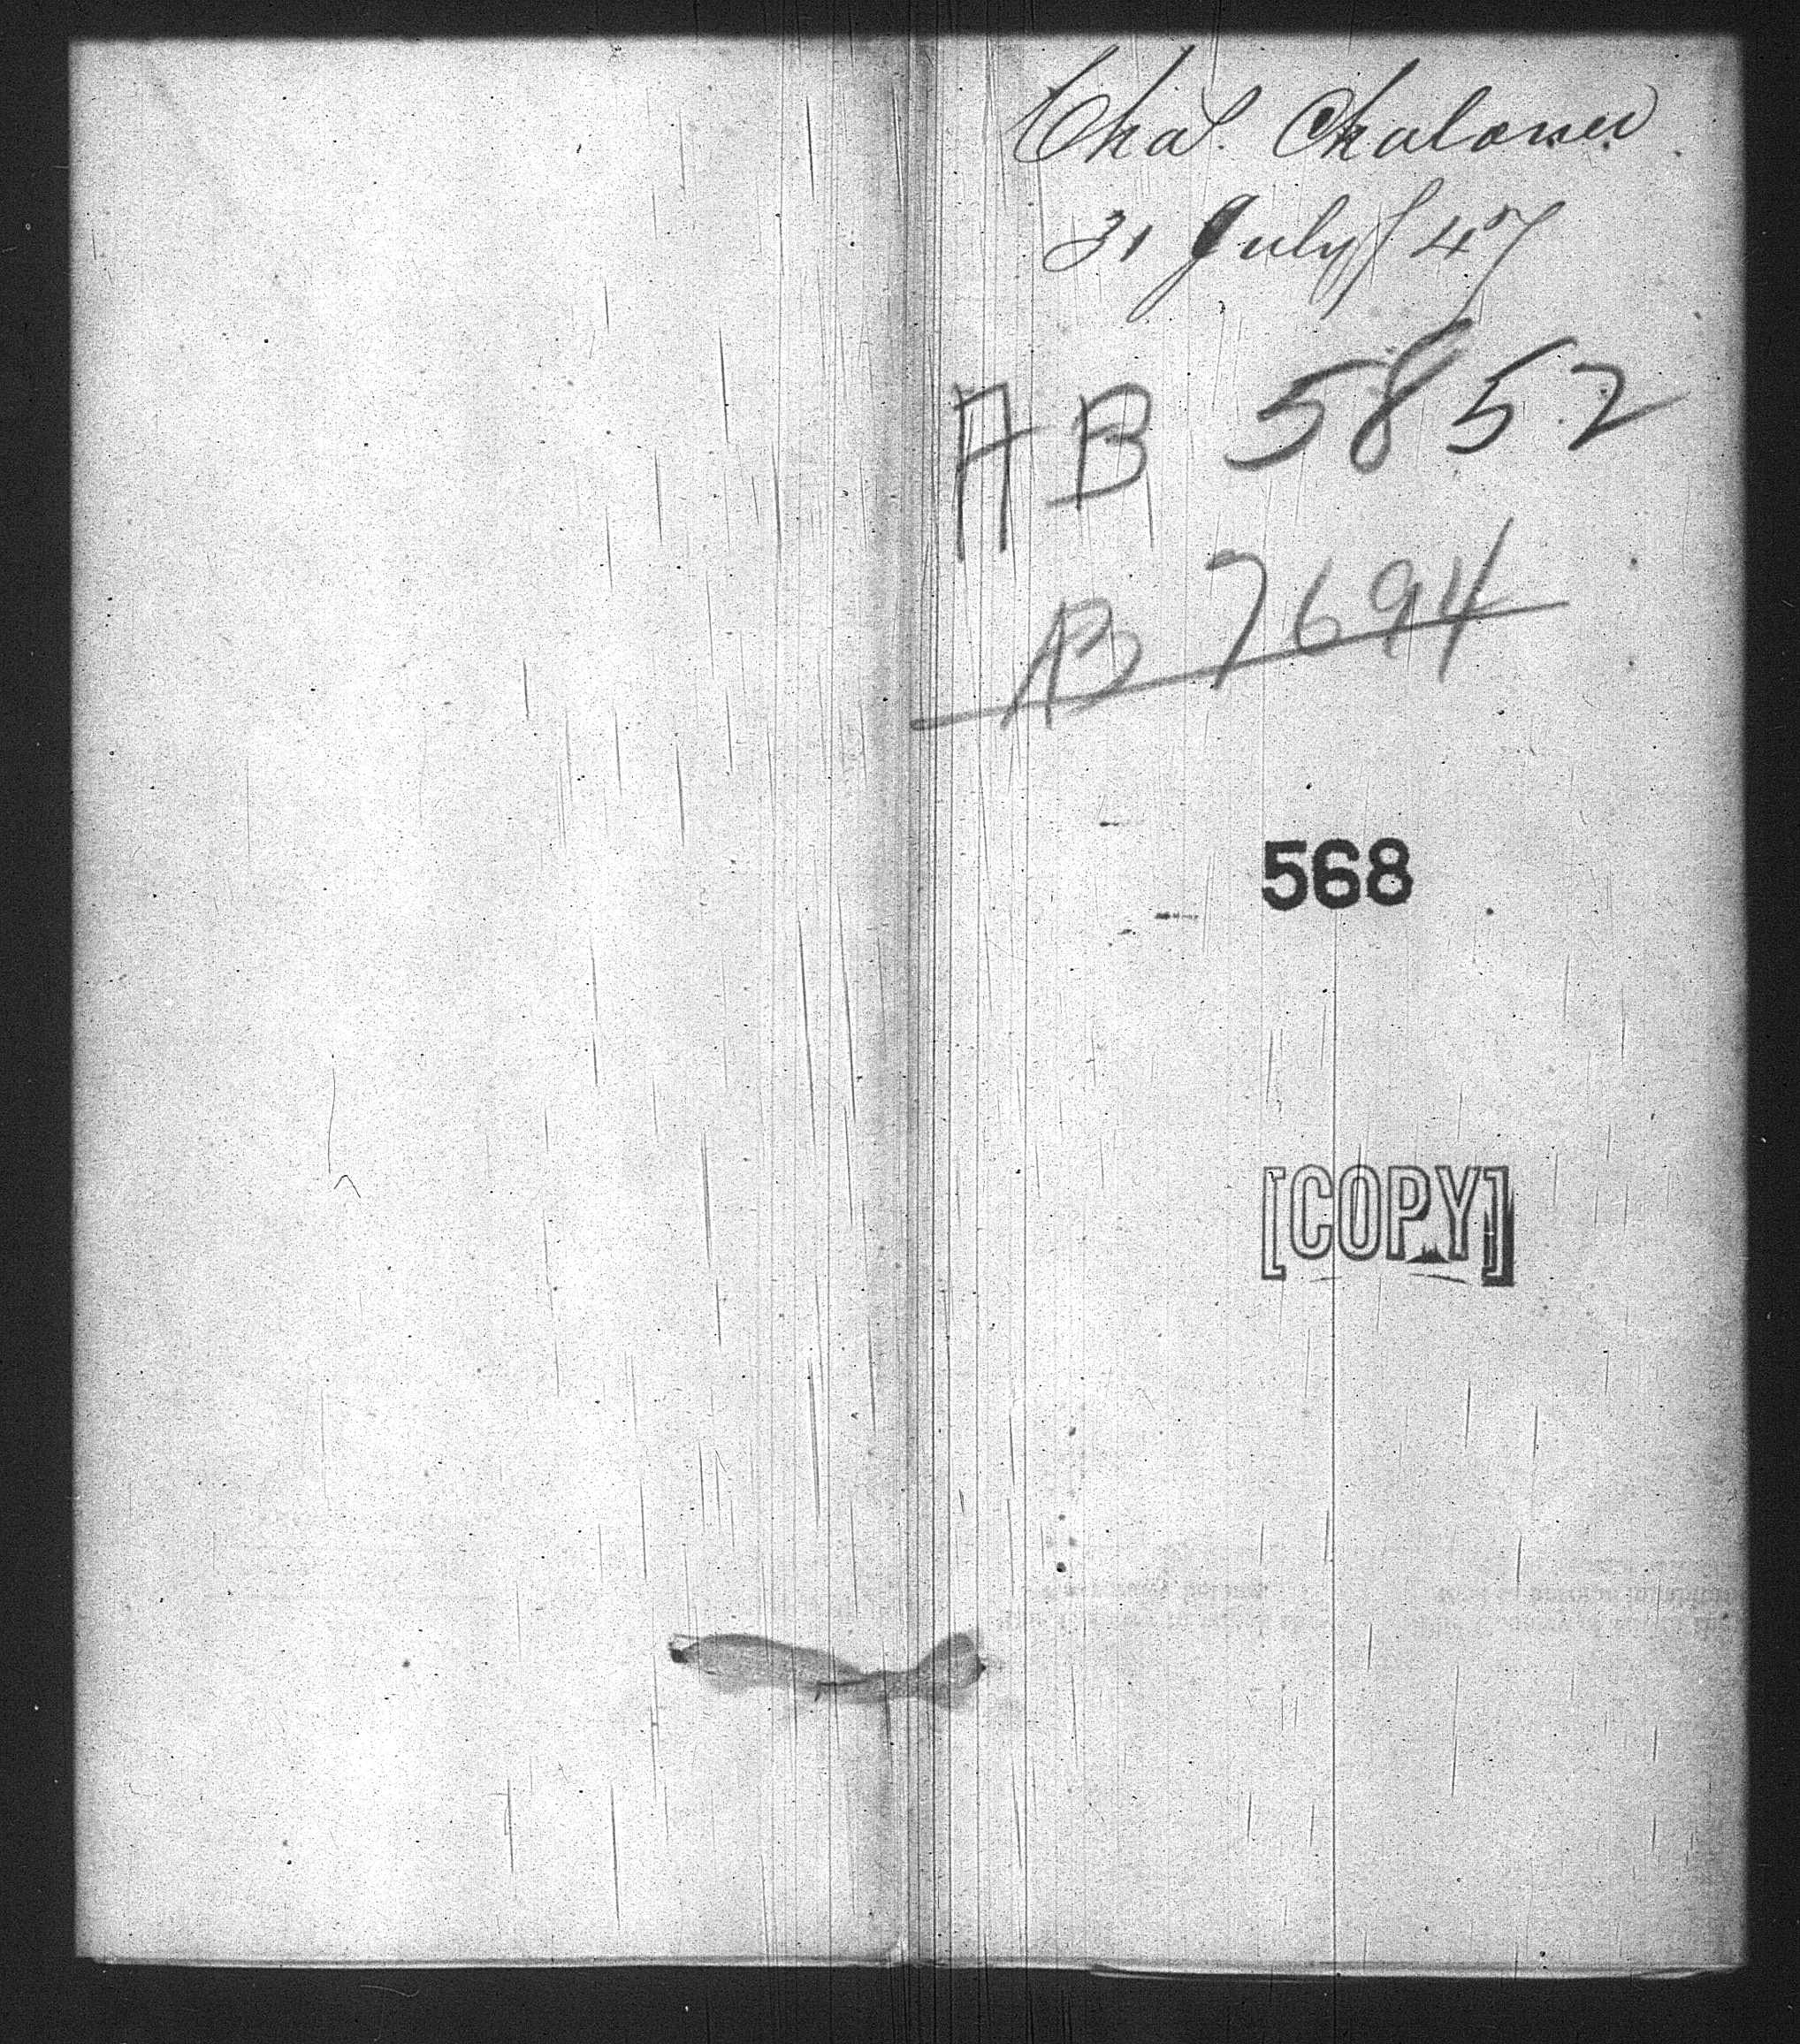 Chas. Chaloner
31 July / 47
AB 5852
AB 7694
568
[COPY]